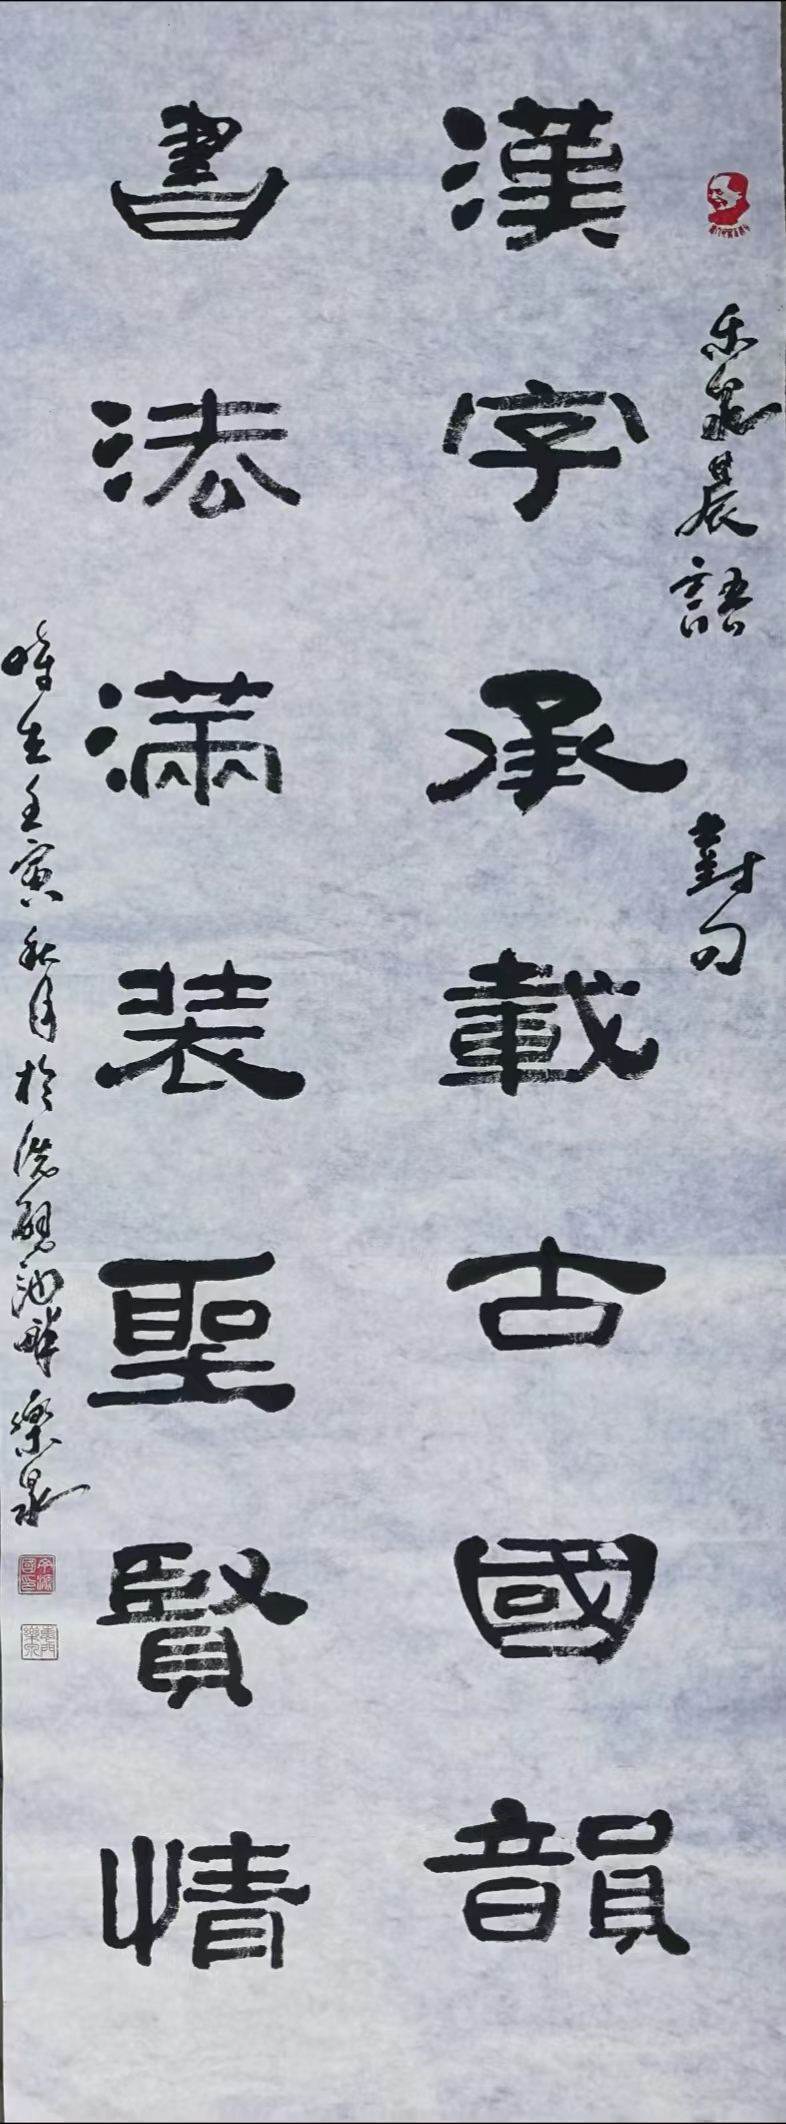 乐泉晨語
對句
漢字承載古國韻
書法滿裝聖賢情
時在壬寅秋月於洗硯池畔樂泉